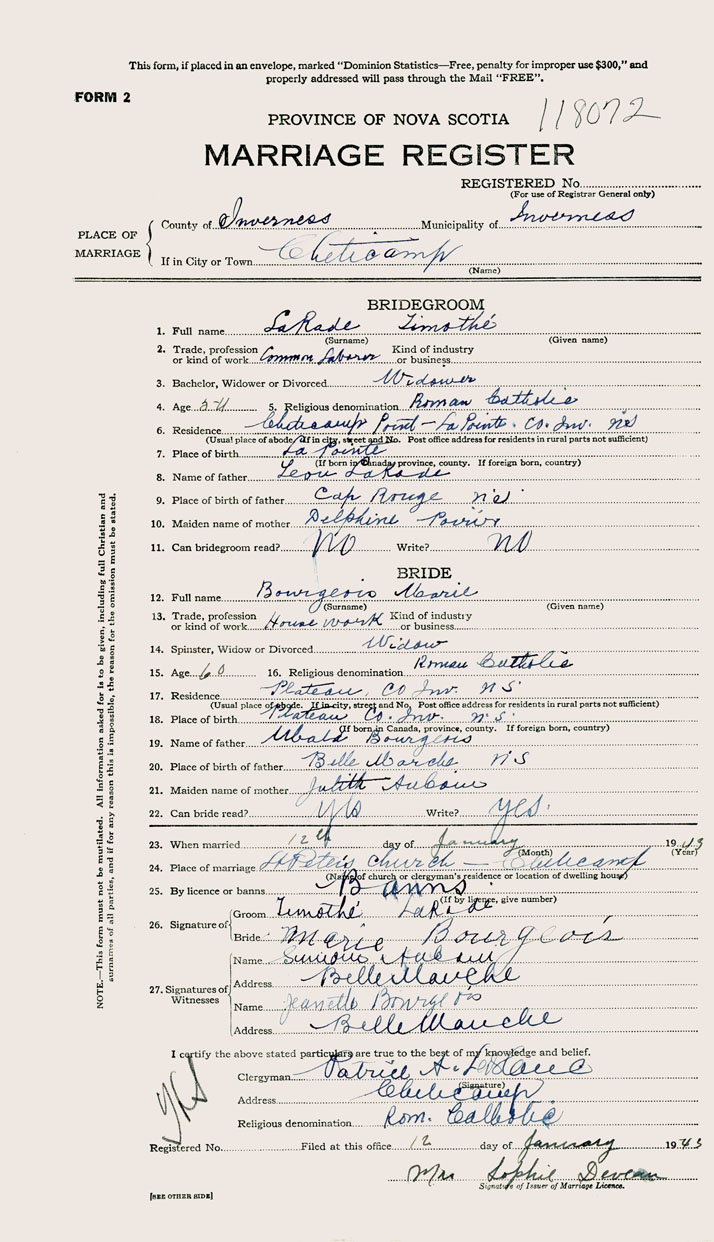 This form, if placed in an envelope, marked "Dominion Statistics—Free, penalty for improper use $300," and
properly addressed will pass through the Mail "FREE".
FORM 2
PROVINCE OF NOVA SCOTIA 118072
MARRIAGE REGISTER
REGISTERED No.
(For use of Registrar General only)
PLACE OF MARRIAGE
County of Inverness Municipality of Inverness
If in City or Town Cheticamp
(Name)
BRIDEGROOM
1. Full name LaRade Timothé
(Surname) (Given name)
2. Trade, profession or kind of work Common Laborer Kind of industry or business
3. Bachelor, Widower or Divorced Widower
4. Age 54 5. Religious denomination Roman Catholic
6. Residence Cheticamp Point - La Pointe. Co. Inv. N S
(Usual place of abode. If in city, street and No. Post office address for residents in rural parts not sufficient)
7. Place of birth La Pointe
(If born in Canada, province, county. If foreign born, country)
8. Name of father Leon LaRade
9. Place of birth of father Cap Rouge N S
10. Maiden name of mother Delphine Poirier
11. Can bridegroom read? No Write? No
BRIDE
12. Full name Bourgeois Marie
(Surname) (Given name)
13. Trade, profession or kind of work House work Kind of industry or business
14. Spinster, Widow or Divorced Widow
15. Age 60 16. Religious denomination Roman Catholic
17. Residence Plateau, Co Inv. N S
(Usual place of abode. If in city, street and No. Post office address for residents in rural parts not sufficient)
18. Place of birth Plateau Co. Inv. N. S.
(If born in Canada, province, county. If foreign born, country)
19. Name of father Ubald Bourgeois
20. Place of birth of father Belle Marche N S
21. Maiden name of mother Judith Aucoin
22. Can bride read? yes Write? yes.
23. When married 12th day of January 1943
(Month) (Year)
24. Place of marriage St Peter's Church - Cheticamp
(Name of church or clergyman's residence or location of dwelling house)
25. By licence or banns Banns
(If by licence, give number)
26. Signature of
Groom Timothé LaRade
Bride Marie Bourgeois
27. Signatures of Witnesses
Name Simon Aucoin
Address Belle Marche
Name Jeanette Bourgeois
Address Belle Marche
I certify the above stated particulars are true to the best of my knowledge and belief.
Clergyman Patrice A. LeBlanc
(Signature)
Address Cheticamp
Religious denomination Rom. Catholic
yes
Registered No. Filed at this office 12 day of January 1943
Mrs Sophie Deveau
Signature of Issuer of Marriage Licence.
[SEE OTHER SIDE]
NOTE.—This form must not be mutilated. All information asked for is to be given, including full Christian and
surnames of all parties, and if for any reason this is impossible, the reason for the omission must be stated.